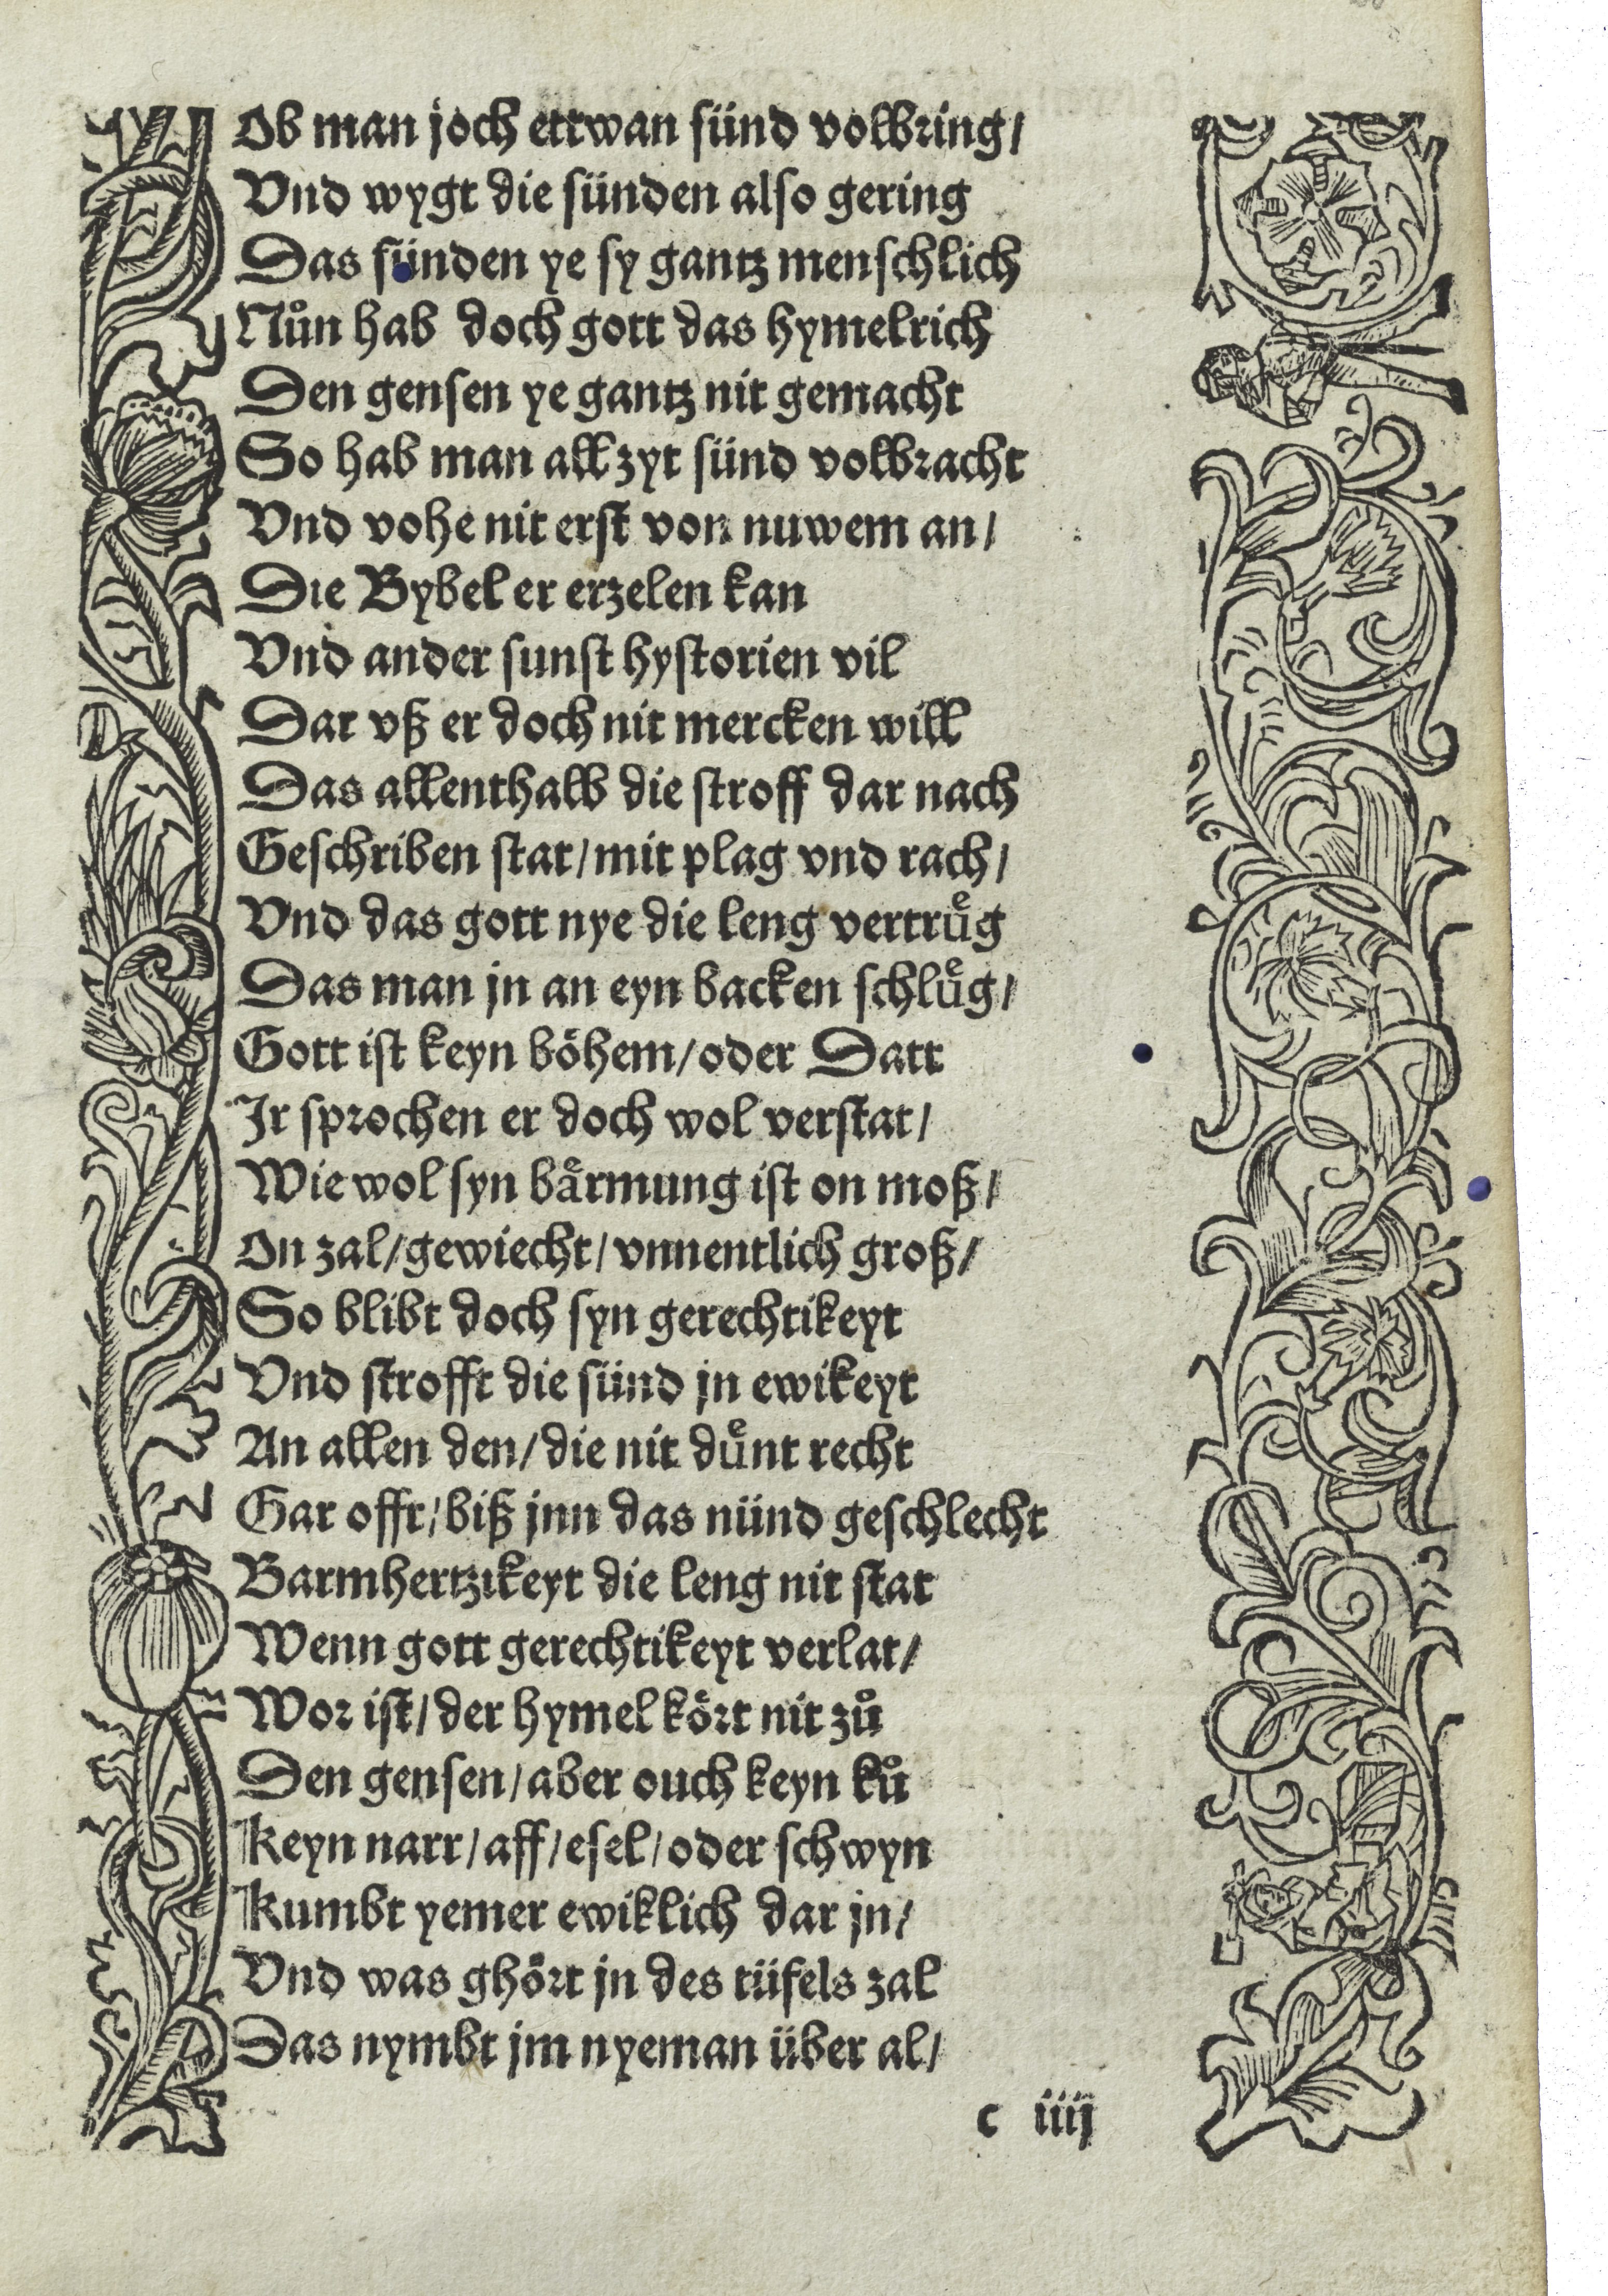 Ob man joch ettwan sünd volbring/
Vnd wygt die sünden also gering
Das sünden ye sy gantz menschlich
Nůn hab doch gott das hymelrich
Den gensen ye gantz nit gemacht
So hab man all zyt sünd volbracht
Vnd vohe nit erst von nuwem an/
Die Bybel er erzelen kan
Vnd ander sunst hystorien vil
Dar vß er doch nit mercken will
Das allenthalb die stroff dar nach
Geschriben stat/mit plag vnd rach/
Vnd das gott nye die leng vertruͤg
Das man jn an eyn backen schluͤg/
Gott ist keyn böhem/oder Datt
Jr sprochen er doch wol verstat/
Wie wol syn baͤrmung ist on moß/
On zal/gewiecht/vnnentlich groß/
So blibt doch syn gerechtikeyt
Vnd strofft die sünd jn ewikeyt
An allen den/die nit duͤnt recht
Gar offt/biß jnn das nünd geschlecht
Barmhertzikeyt die leng nit stat
Wenn gott gerechtikeyt verlat/
Wor ist/der hymel kört nit zů
Den gensen/aber ouch keyn ků
Keyn narr/aff/esel/oder schwyn
Kumbt yemer ewiklich dar jn/
Vnd was ghört jn des tüfels zal
Das nymbt jm nyeman über al/
c iiij